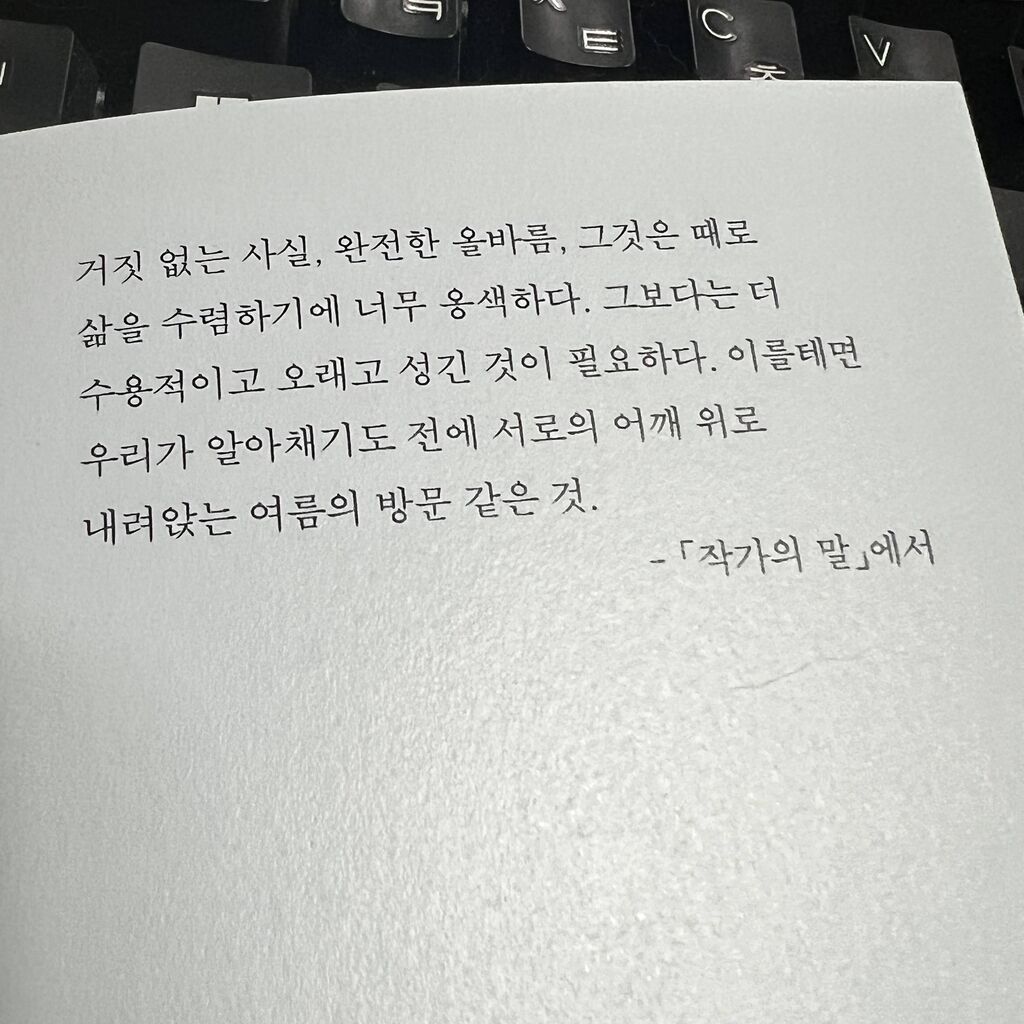 ㅋ
ㅌ
C
ㅊ
V
거짓 없는 사실, 완전한 올바름, 그것은 때로
삶을 수렴하기에 너무 옹색하다. 그보다는 더
수용적이고 오래고 성긴 것이 필요하다. 이를테면
우리가 알아채기도 전에 서로의 어깨 위로
내려앉는 여름의 방문 같은 것.
-「작가의 말」에서